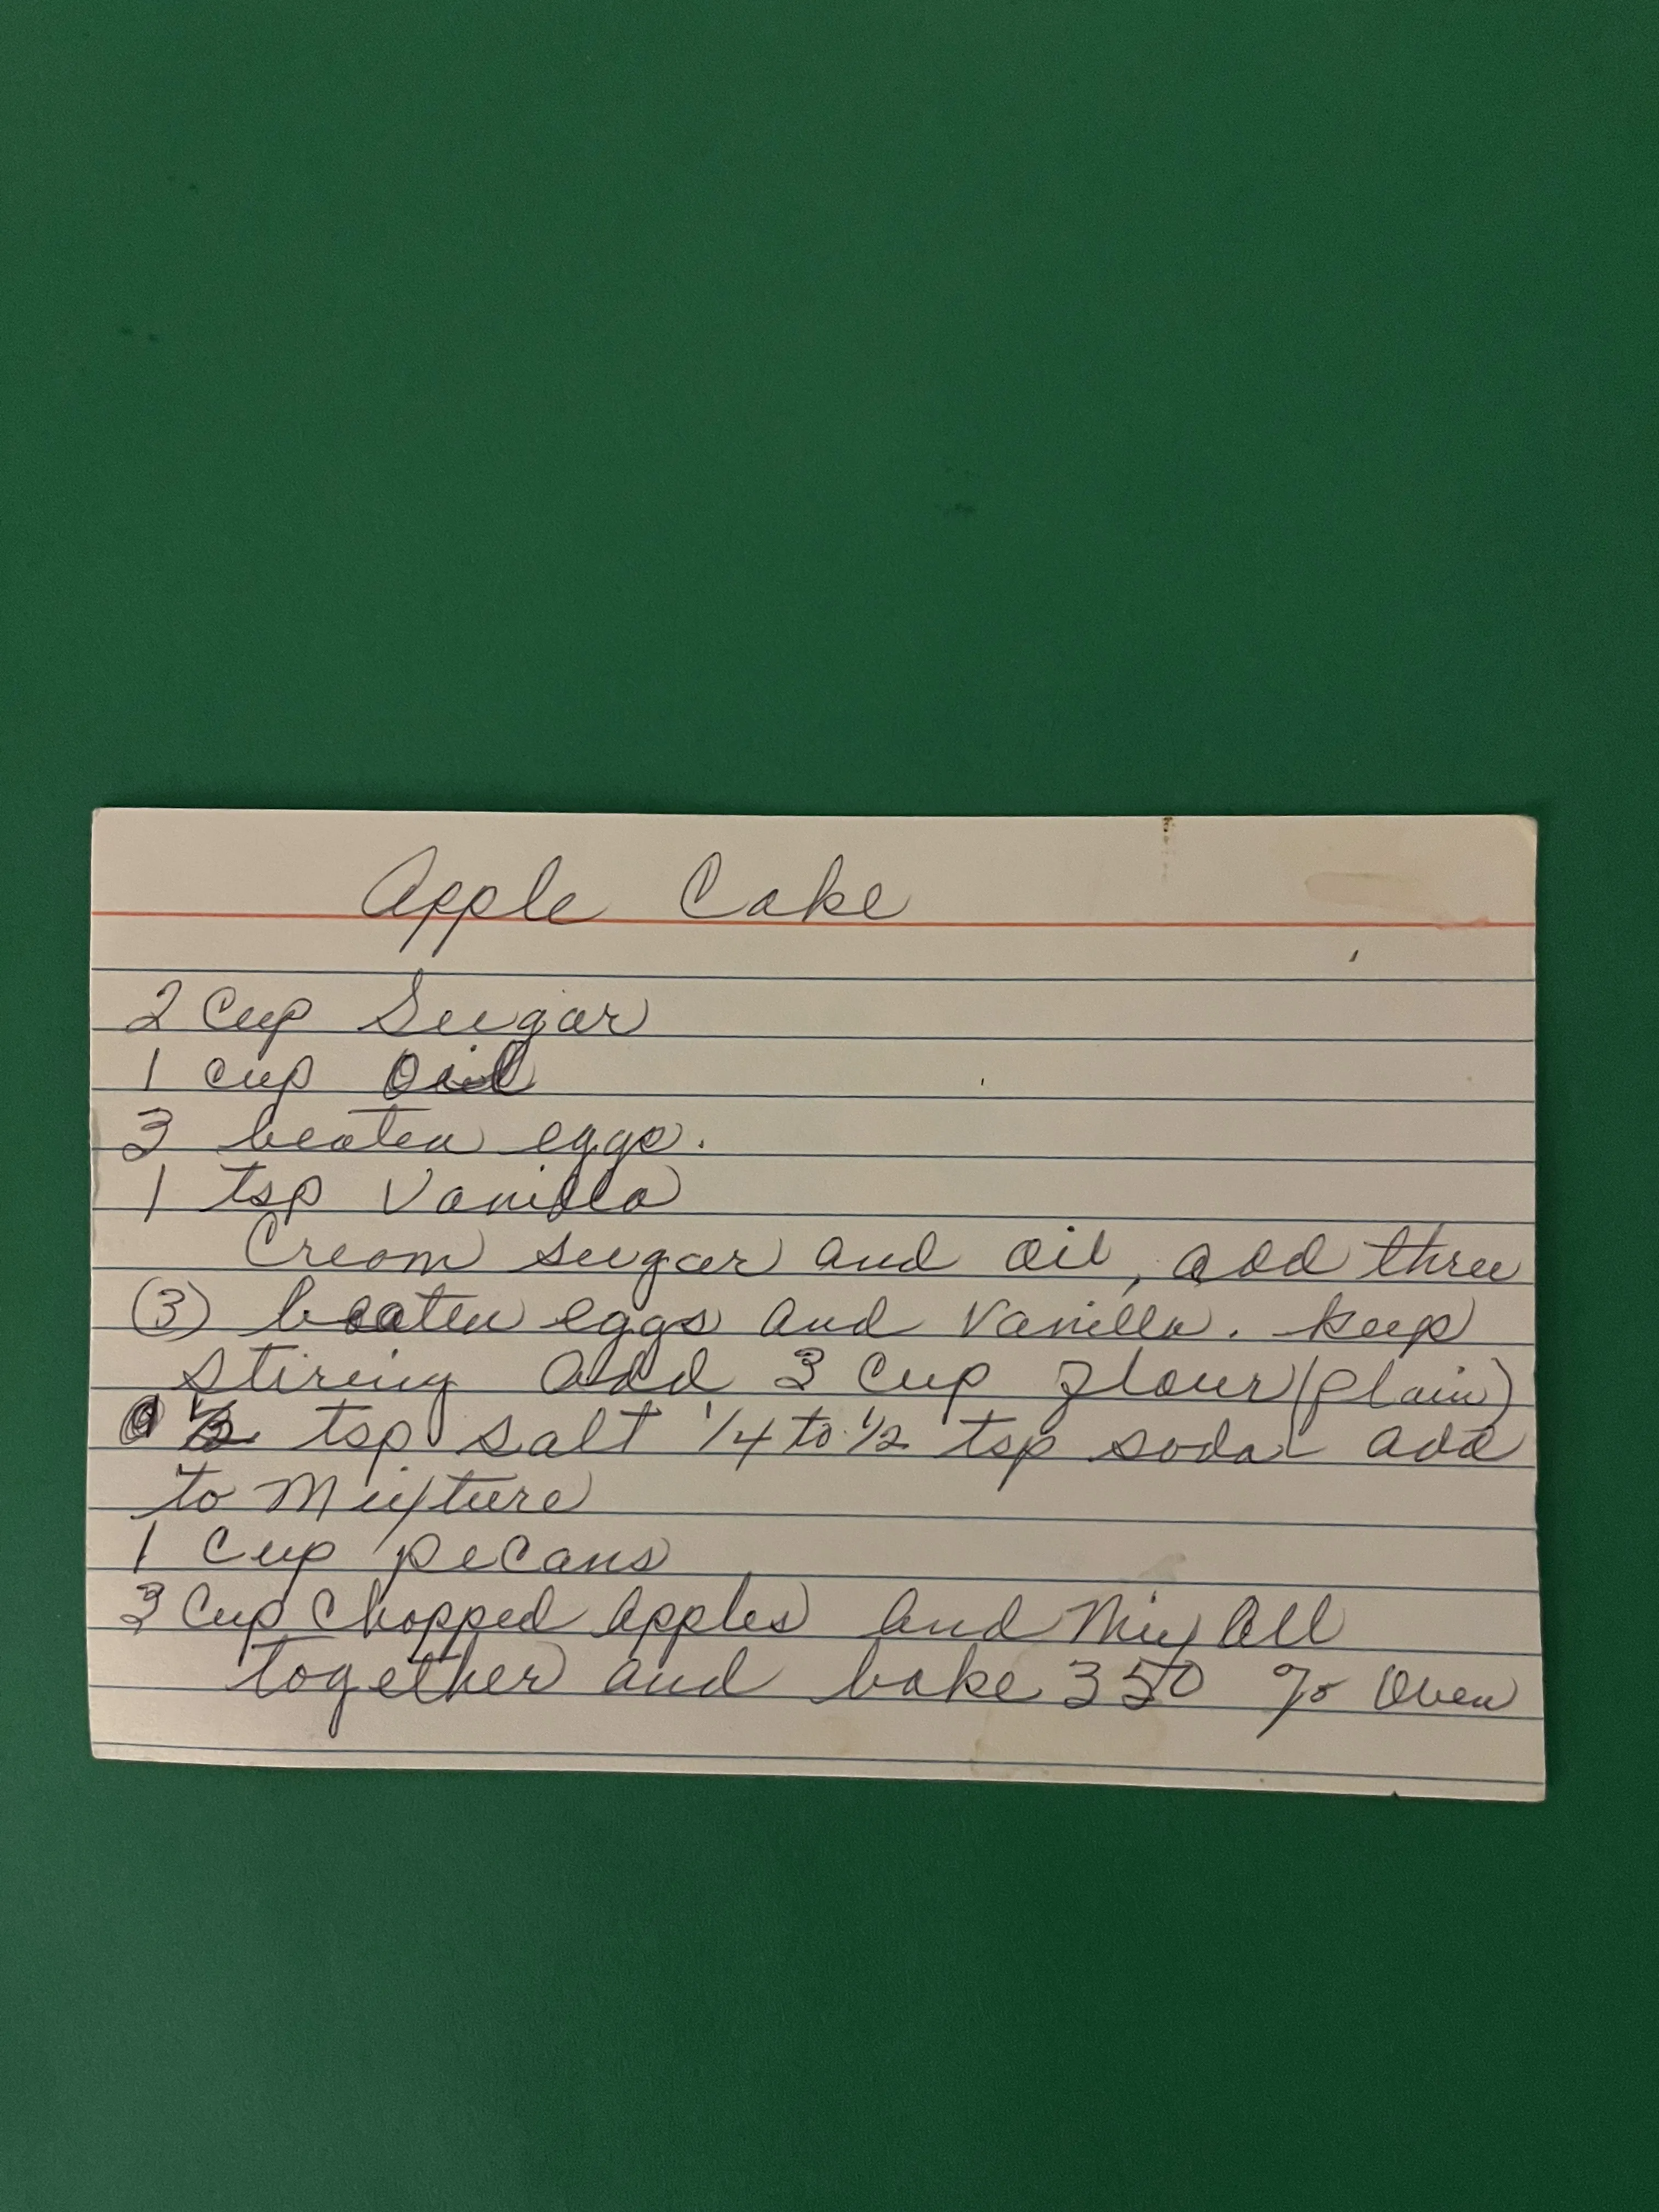 Apple Cake
2 Cup Sugar
1 cup Oil
3 beaten eggs.
1 tsp Vanilla
Cream sugar and oil, add three
(3) beaten eggs and Vanilla. keep
stiring add 3 Cup flour (plain)
1/2 tsp salt 1/4 to 1/2 tsp soda add
to Mixture
1 Cup pecans
3 Cup Chopped Apples and Mix All
together and bake 350 % Oven